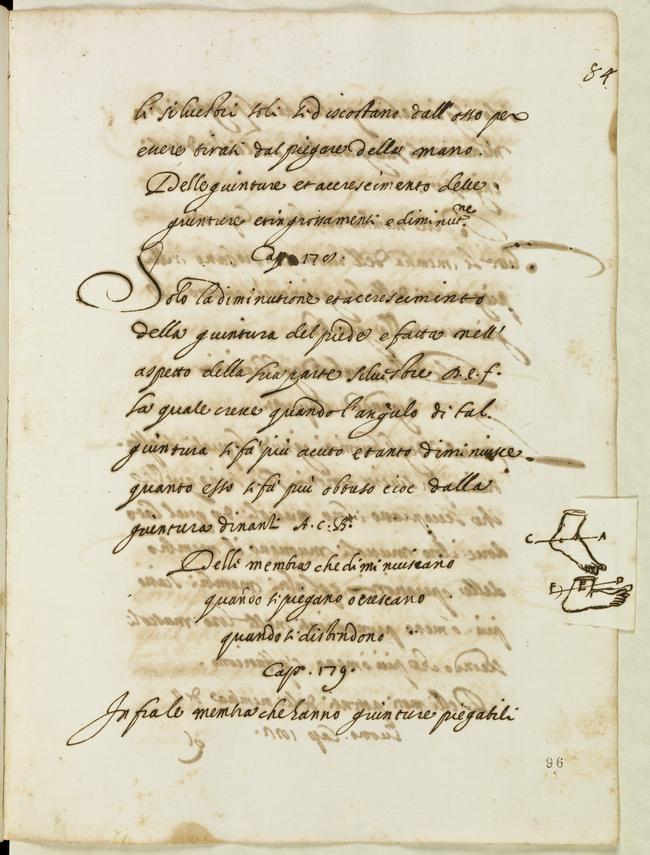 84
li silvestri soli si discostano dall'osso per
essere tirati dal piegare della mano.
Delle giunture et accrescimento delle
giunture et ingrossamenti e diminut.ne
Cap. 178.
Solo la diminutione et accrescimento
della giuntura del piede e fatta nell'
aspetto della sua parte silvestre D. e. f.
la quale cresce quando l'angulo di tal
giuntura si fà più acuto e tanto diminuisce
quanto esso si fà più obtuso cioè dalla
giuntura dinanti A. c. B.
C A
Delli membra che diminuiscano
E F D
quando si piegano o crescano
quando si distendono
Cap. 179.
Infra le membra che hanno giunture piegabili
96